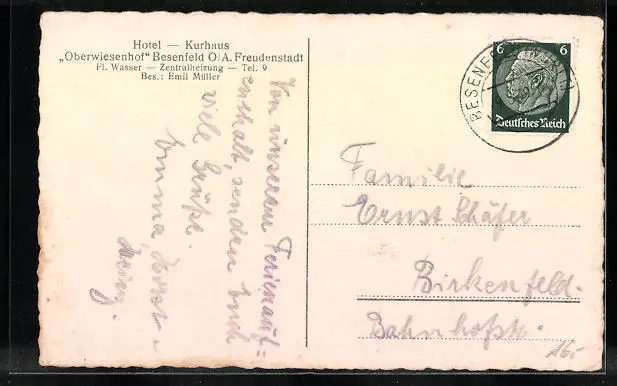 Hotel — Kurhaus
„Oberwiesenhof“ Besenfeld O/A. Freudenstadt
Fl. Wasser — Zentralheizung — Tel. 9
Bes.: Emil Müller
Von unserem Ferienauf=
enthalt, senden Euch
viele Grüße.
Emma, Horst
6 6
Deutsches Reich
BESENFE
Familie
Ernst Schäfer
Birkenfeld.
Bahnhofstr.
16.-